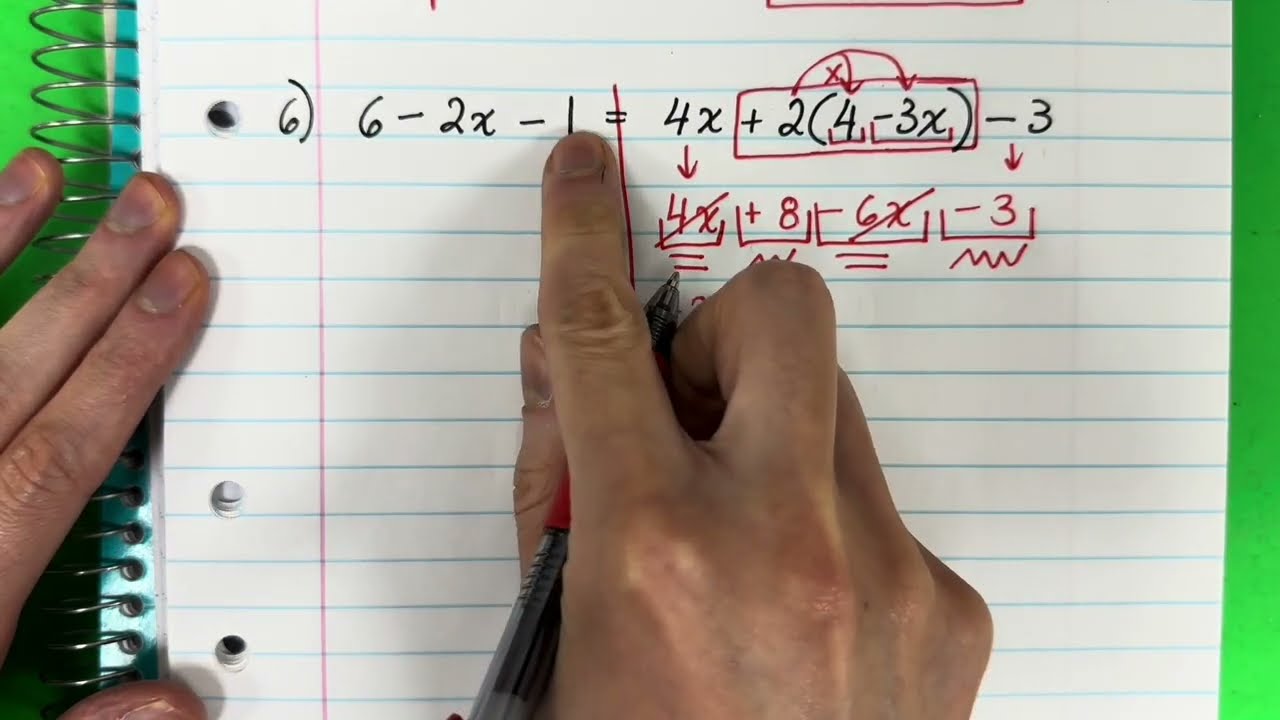 6) 6 - 2x - 1 = 4x + 2(4 - 3x) - 3
x
4x + 8 - 6x - 3